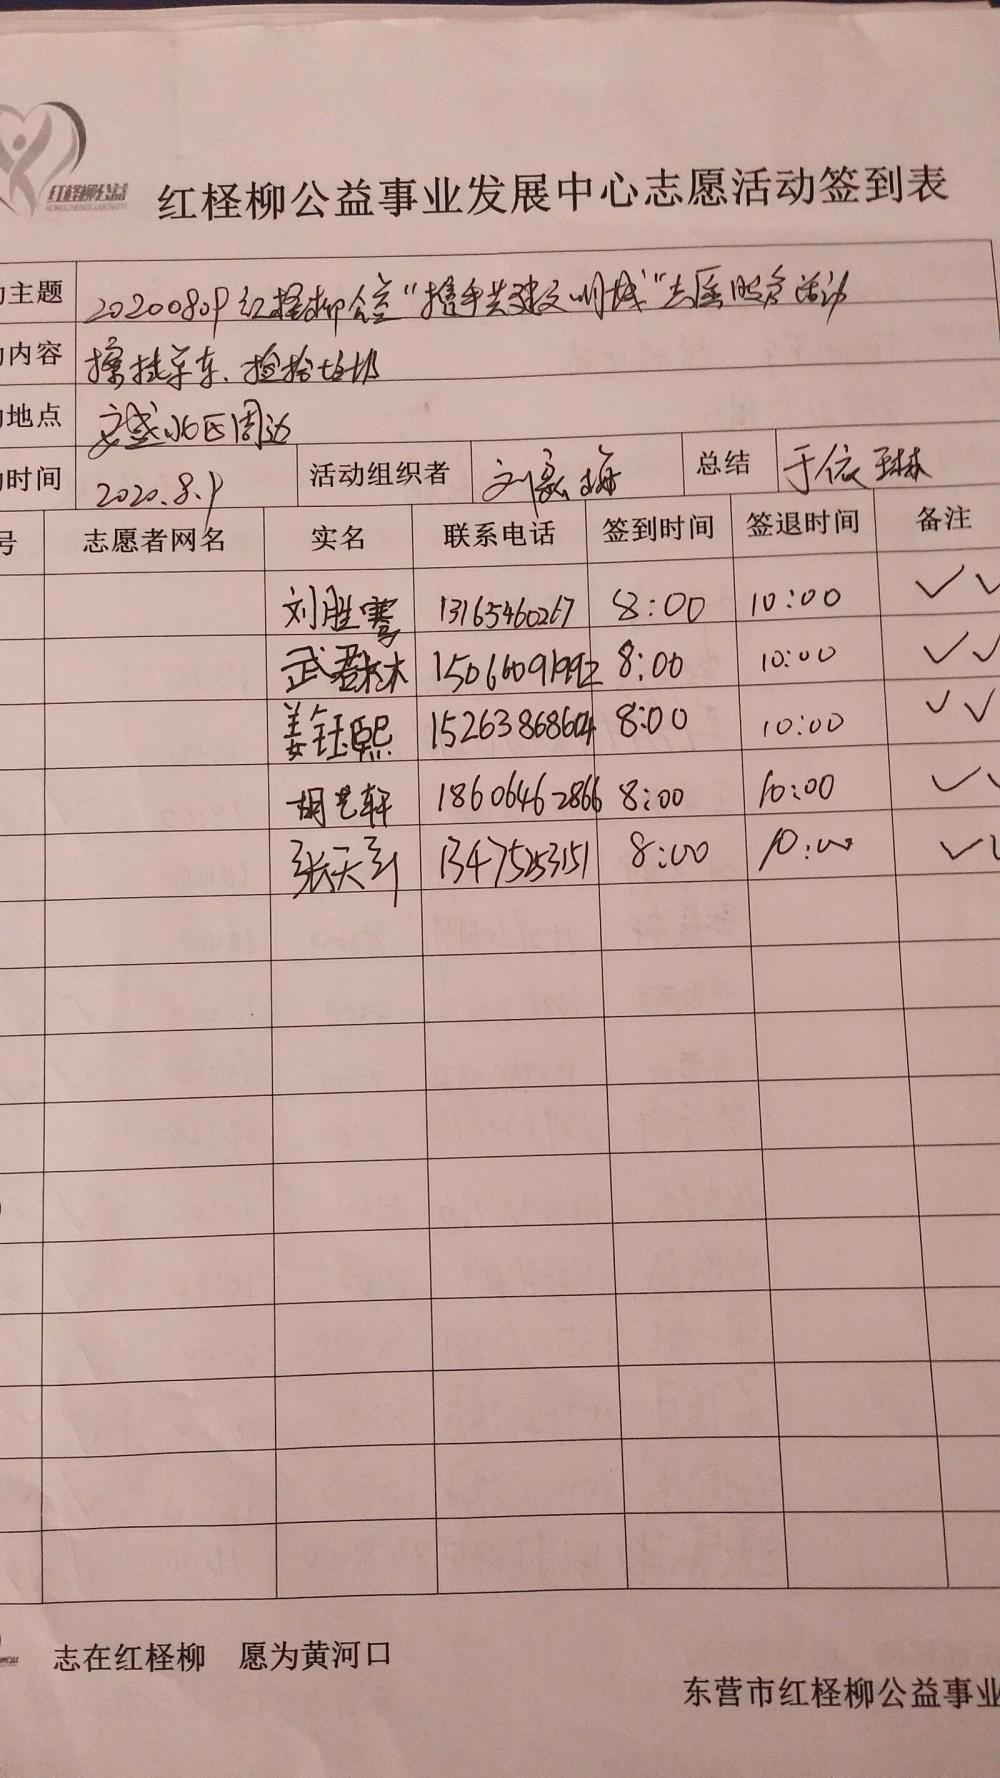 红柽柳公益
红柽柳公益事业发展中心志愿活动签到表
主题 20200809红柽柳公益“携手共建文明城”志愿服务活动
内容 擦拭单车、捡拾垃圾
地点 安盛小区周边
时间 2020.8.9 活动组织者 总结 于依琳
号 志愿者网名 实名 联系电话 签到时间 签退时间 备注
刘胜骞 13165460267 8:00 10:00 ✓✓
武君林 15066091992 8:00 10:00 ✓✓
姜钰熙 15263868604 8:00 10:00 ✓✓
胡艺轩 18606462866 8:00 10:00 ✓✓
张天引 13475253151 8:00 10:00 ✓✓
志在红柽柳 愿为黄河口
东营市红柽柳公益事业